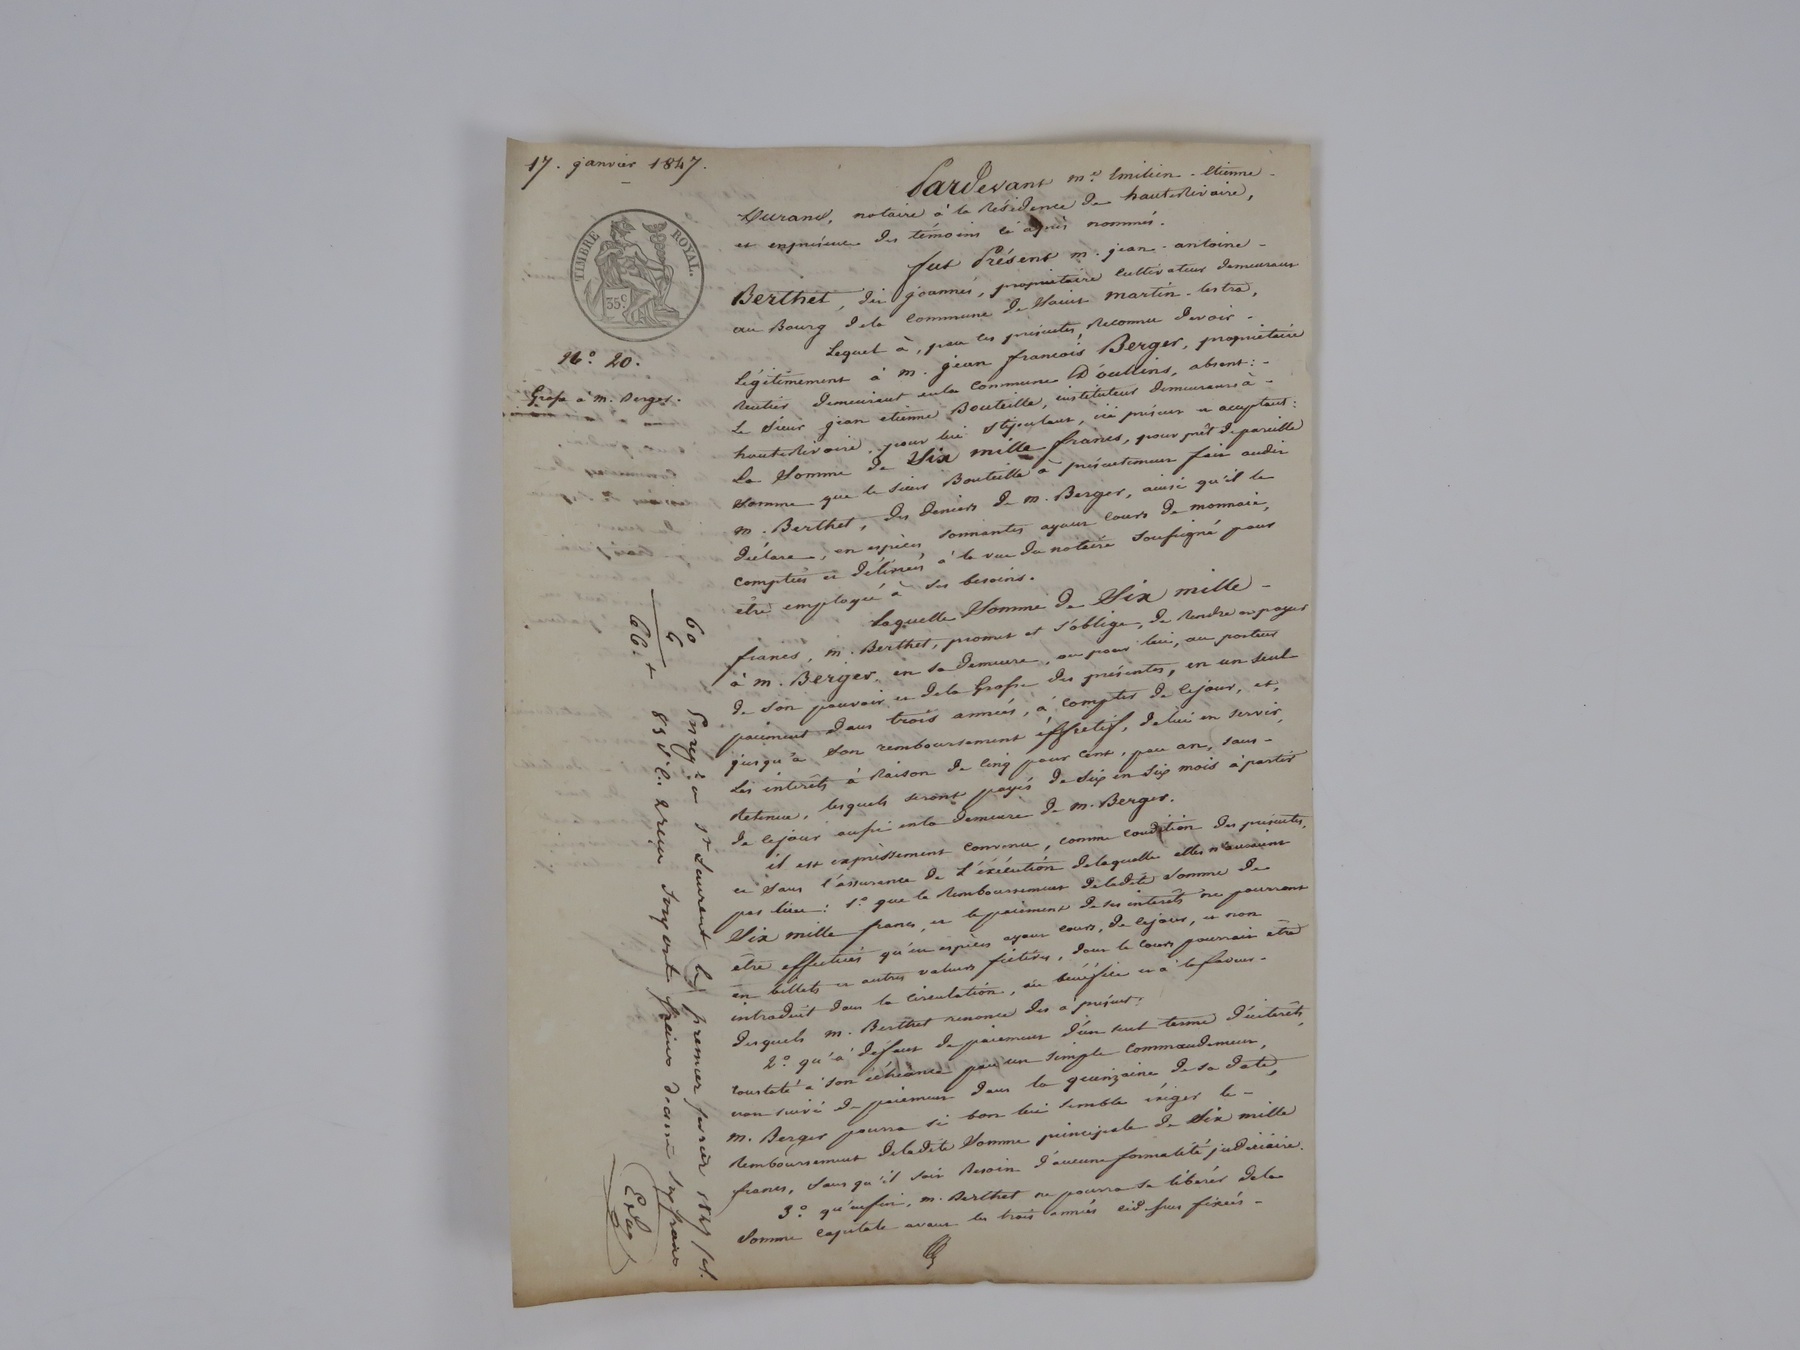 17. janvier 1847.
TIMBRE ROYAL.
35 c
No. 20.
Grosse à m. Berger.
Pardevant me. Emilien - Etienne -
Durand, notaire à la Résidence de hauteRivoire,
et enprésence des témoins ci après nommés.
fut Présent m. jean - antoine -
Berthet, dit joannés, propriétaire cultivateur demeurant
au Bourg dela commune de Saint martin - lestra,
Lequel à, par ces présentes, Reconnu devoir -
légitimement à m. jean françois Berger, propriétaire
Rentier demeurant enla commune D'oullins, absent: -
Le Sieur jean etienne Bouteille, instituteur demeurant à -
hauteRivoire, pour lui Stipulant, ici présent et acceptant:
La Somme de Six mille francs, pour prêt de pareille
Somme que le Sieur Bouteille à présentement fait audit
m. Berthet, des deniers de m. Berger, ainsi qu'il le
déclare, en espèces sonnantes ayant cours de monnaie,
comptées et délivrées à la vue du notaire Soussigné pour
être employée à ses besoins.
Laquelle Somme de Six mille -
francs, m. Berthet, promet et s'oblige, de Rendre ou payer
à m. Berger, en sa demeure, ou pour lui, au porteur
de son pouvoir et dela Grosse des présentes, en un seul
paiement dans trois années, à compter de cejour, et,
jusqu'à son remboursement éffectif, delui en servir
Les intérêts à Raison de cinq pour cent, par an, sans -
Retenue, lesquels seront payés de Six en Six mois à partir
de cejour aussi enla demeure de m. Berger.
il est expressément convenu, comme condition des présentes,
et sans l'assurance de l'éxécution delaquelle elles n'auraient
pas lieu: 1.o que le Remboursement deladite Somme de
Six mille francs, et le paiement de ses intérêts ne pourront
être effectués qu'en espèces ayant cours, de cejour, et non
en billets et autres valeurs fictives, dont le cours pourrait être
introduit dans la circulation, au bénéfice et à lafaveur -
desquels m. Berthet renonce dès à présent;
2.o qu'à défaut de paiement d'un seul terme d'intérêts,
constaté à son échéance par un simple commandement,
non suivi de paiement dans la quinzaine de sa date,
m. Berger pourra si bon lui semble éxiger le -
Remboursement deladite Somme principale de Six mille
francs, sans qu'il soit Besoin d'aucune formalité judiciaire.
3.o qu'enfin, m. Berthet ne pourra se libérer dela
Somme capitale avant les trois années cidessus fixées -
60
6
66.
Enreg. à St Laurent le premier février 1847 fol.
83 V. c. 2 reçu soixante francs décime six francs